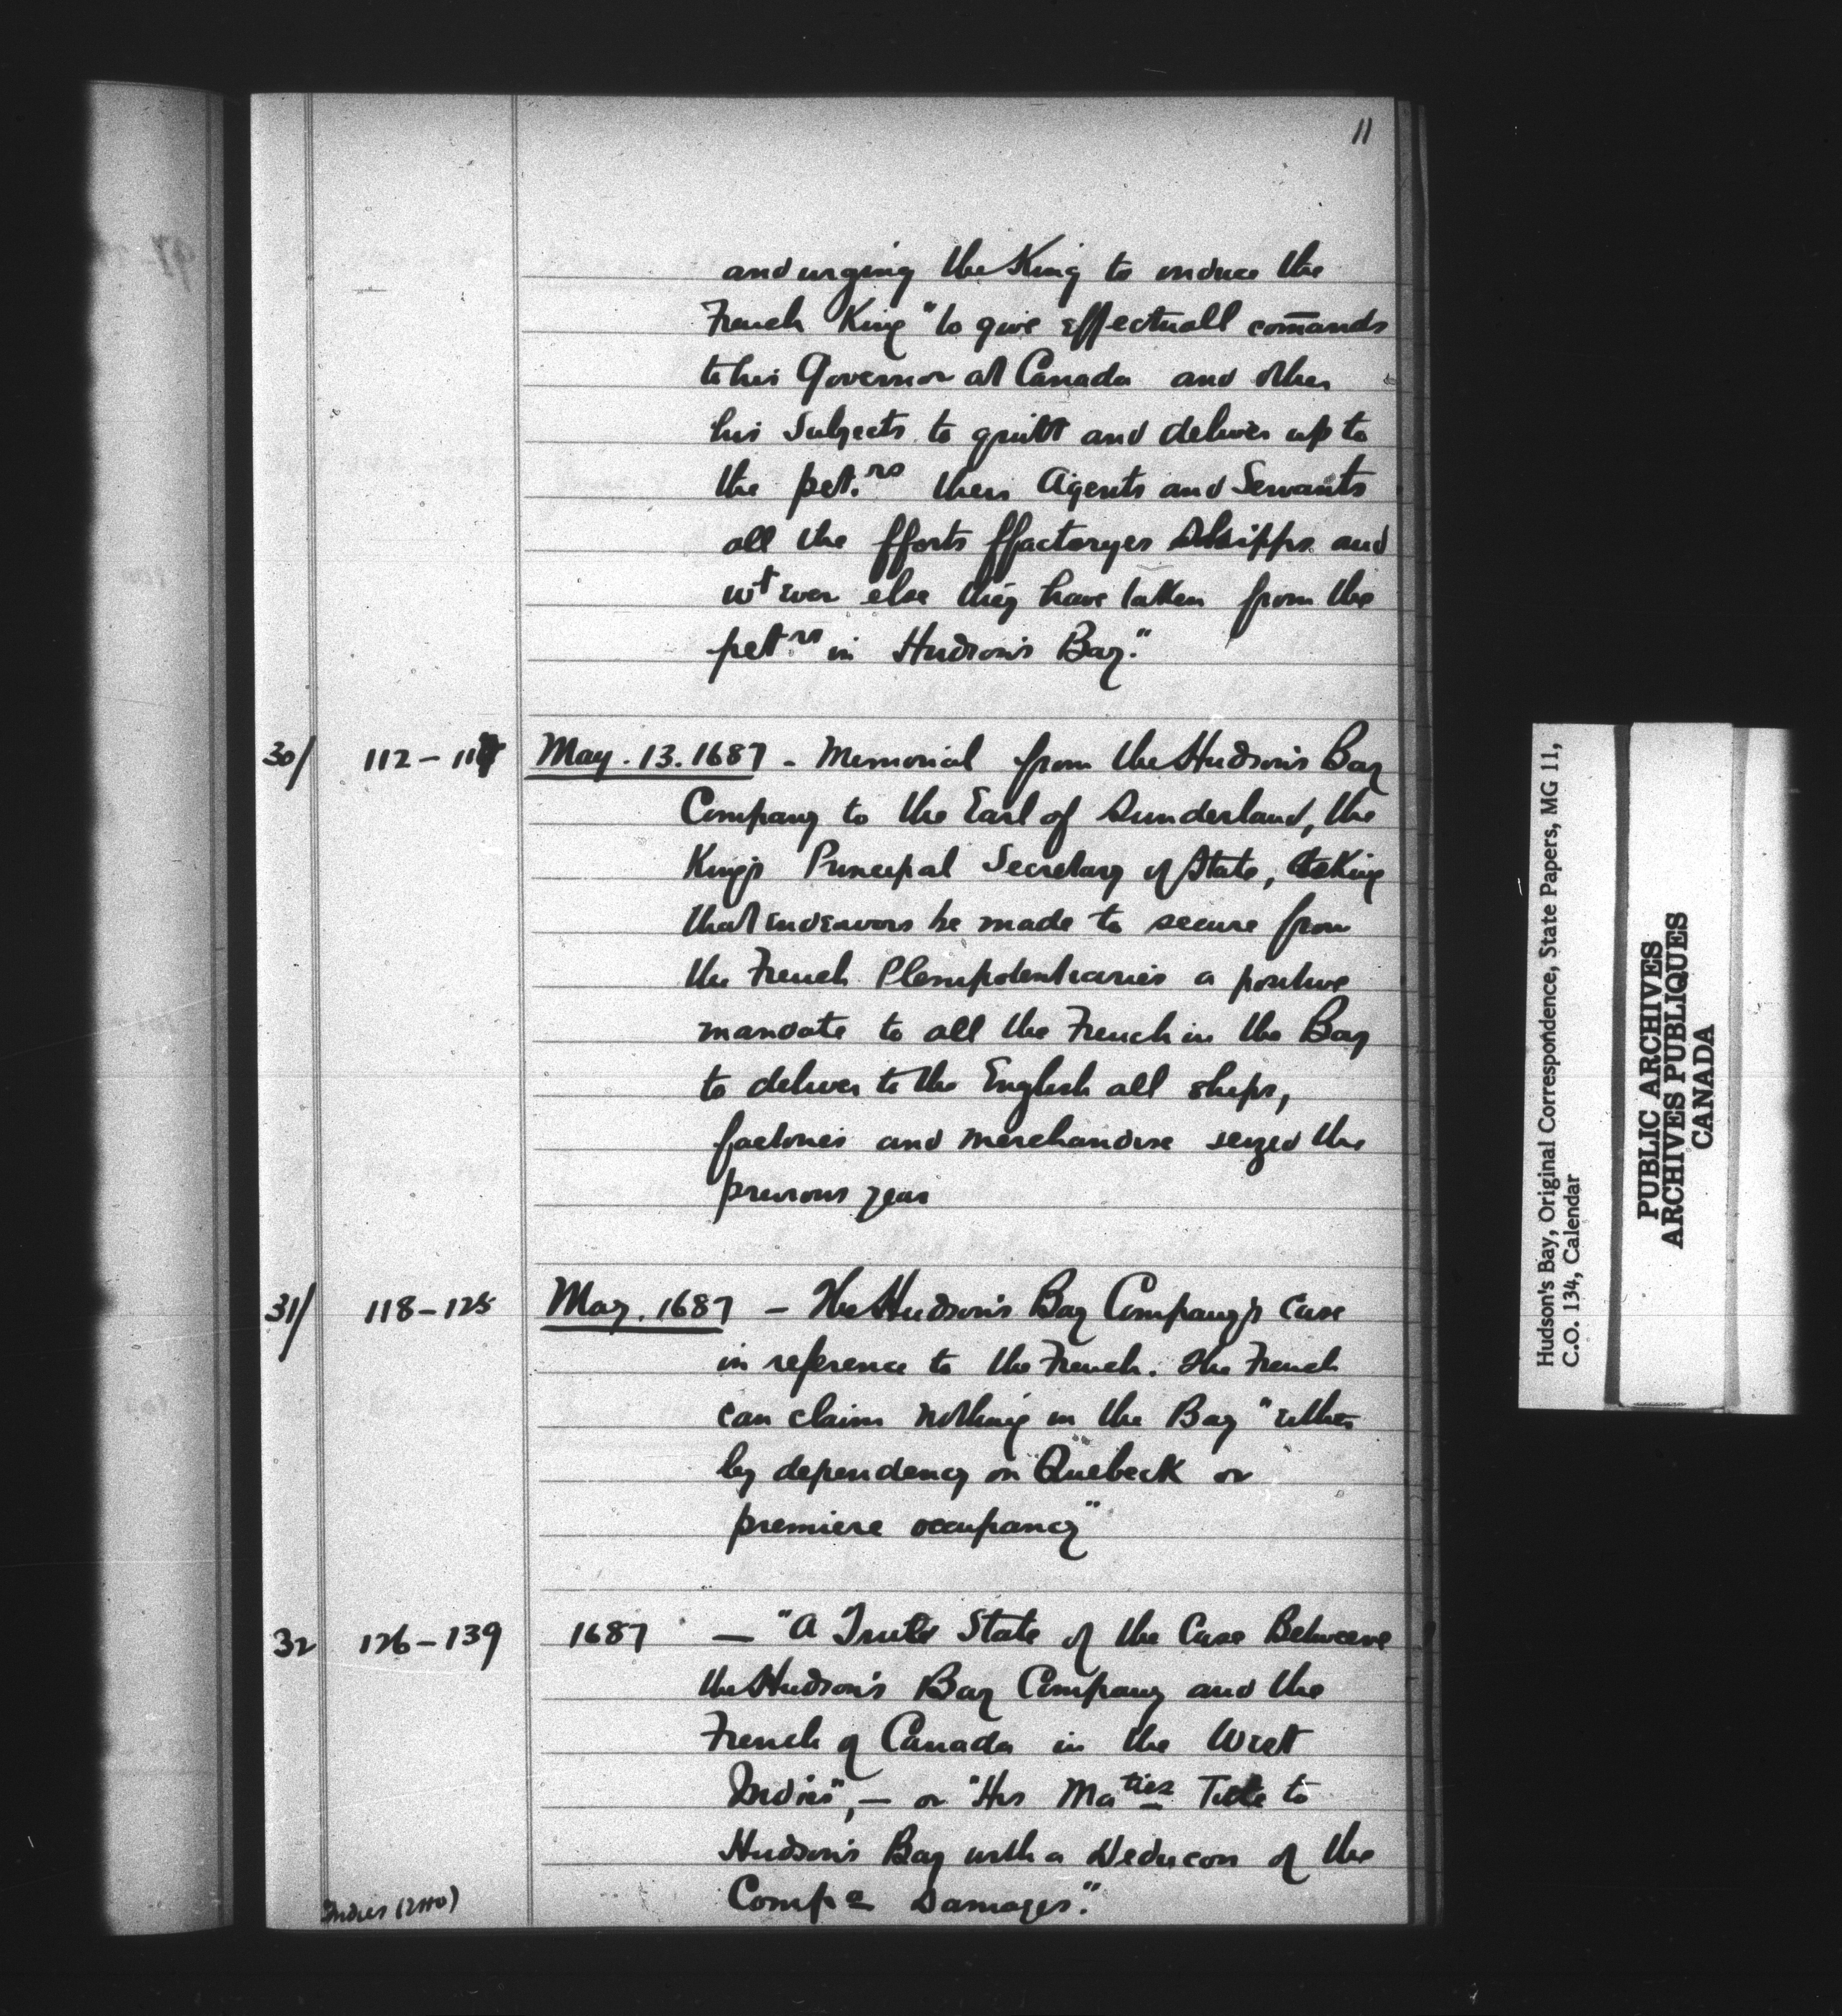 11
and urging the King to induce the
French King "to give effectuall com̄ands
to his Governor at Canada and other
his Subjects to quitt and deliver up to
the pet.rs their Agents and Servants
all the fforts ffactoryes Shipps and
wt ever else they have taken from the
pet.rs in Hudson's Bay."
30/ 112-117 May. 13. 1687 - Memorial from the Hudson's Bay
Company to the Earl of Sunderland, the
King's Principal Secretary of State, asking
that endeavors be made to secure from
the French Plenipotentiaries a positive
mandate to all the French in the Bay
to deliver to the English all ships,
factories and merchandise seized the
previous year
31/ 118-125 May. 1687 - The Hudson's Bay Company's case
in reference to the French. The French
can claim nothing in the Bay "either
by dependency on Quebeck or
premiere occupancy"
32 126-139 1687 - "A True State of the Case Betweene
the Hudson's Bay Company and the
French of Canada in the West
Indies", - or "His Maties Title to
Hudson's Bay with a Deducon of the
Compa Damages."
Indies
Hudson's Bay, Original Correspondence, State Papers, MG 11,
C.O. 134, Calendar
PUBLIC ARCHIVES
ARCHIVES PUBLIQUES
CANADA